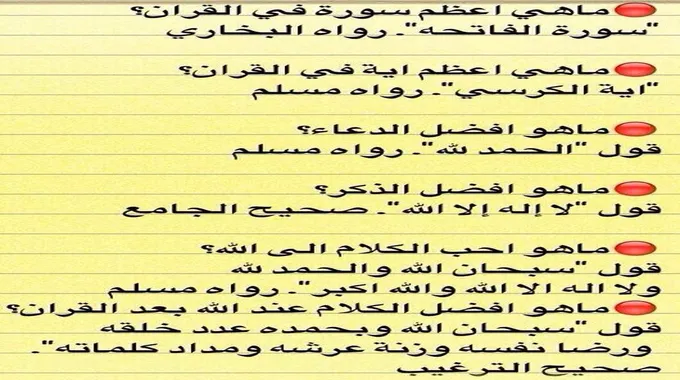 🔴ماهي اعظم سورة في القران؟
"سورة الفاتحه". رواه البخاري
🔴ماهي اعظم اية في القران؟
"اية الكرسي". رواه مسلم
🔴ماهو افضل الدعاء؟
قول "الحمد لله". رواه مسلم
🔴ماهو افضل الذكر؟
قول "لا إله إلا الله". صحيح الجامع
🔴ماهو احب الكلام الى الله؟
قول "سبحان الله والحمد لله
ولا اله الا الله والله اكبر". رواه مسلم
🔴ماهو افضل الكلام عند الله بعد القران؟
قول "سبحان الله وبحمده عدد خلقه
ورضا نفسه وزنة عرشه ومداد كلماته".
صحيح الترغيب